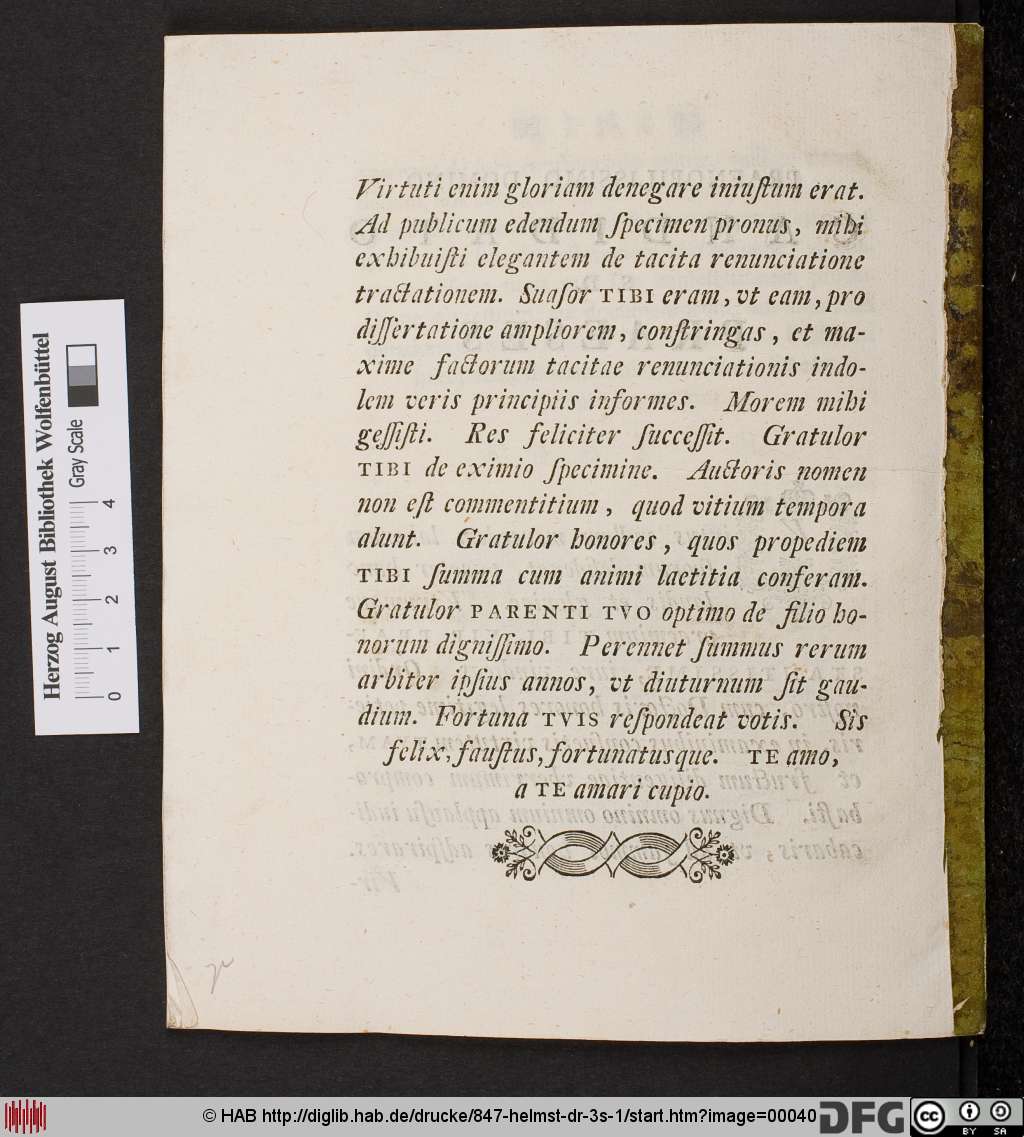 Virtuti enim gloriam denegare iniuſtum erat.
Ad publicum edendum ſpecimen pronus, mihi
exhibuiſti elegantem de tacita renunciatione
tractationem. Suaſor TIBI eram, vt eam, pro
diſſertatione ampliorem, conſtringas, et ma-
xime factorum tacitae renunciationis indo-
lem veris principiis informes. Morem mihi
geſſiſti. Res feliciter ſucceſſit. Gratulor
TIBI de eximio ſpecimine. Auctoris nomen
non eſt commentitium, quod vitium tempora
alunt. Gratulor honores, quos propediem
TIBI ſumma cum animi laetitia conferam.
Gratulor PARENTI TVO optimo de filio ho-
norum digniſſimo. Perennet ſummus rerum
arbiter ipſius annos, vt diuturnum ſit gau-
dium. Fortuna TVIS reſpondeat votis. Sis
felix, fauſtus, fortunatusque. TE amo,
a TE amari cupio.
Herzog August Bibliothek Wolfenbüttel
Gray Scale
0 1 2 3 4
© HAB http://diglib.hab.de/drucke/847-helmst-dr-3s-1/start.htm?image=00040
DFG
cc BY SA